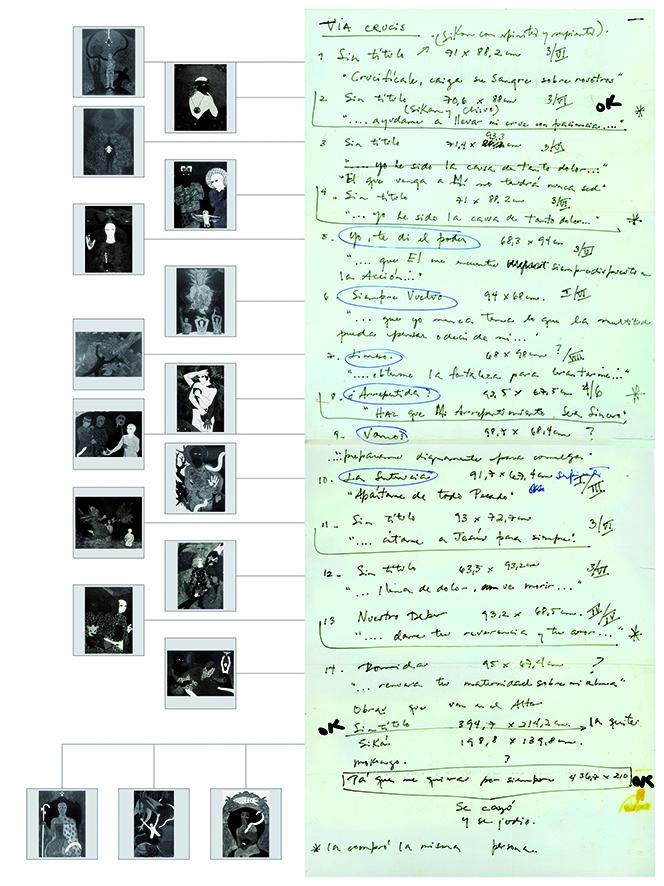 VIA CRUCIS (Sikan con espinitas y serpientes).
1 Sin título 71 x 88,2 cm 3/VI
"Crucifícale, caiga su sangre sobre nosotros"
2. Sin título 70,6 x 88 cm 3/VI OK
(Sikan y chivo) *
".... ayudame a llevar mi cruz con paciencia...."
3 Sin título 71,4 x 93,3 3/VI
".... yo he sido la causa de tanto dolor..."
"El que venga a Mí no tendrá nunca sed"
4. Sin título 71 x 88,2 cm 3/VI
".... yo he sido la causa de tanto dolor..." *
5. Yo, te di el poder 68,3 x 94 cm 3/VI
".... que El me encuentre siempre dispuesto a
la Acción..."
6. Siempre Vuelvo 94 x 68 cm. I/VI
"... que yo nunca tema lo que la multitud
pueda pensar o decir de mi... "
7. 68 x 98 cm ?/VIII
".... obtenme la fortaleza para levantarme..."
8. ¿Arrepentida? 92,5 x 67,5 cm 4/6 *
"Haz que Mi Arrepentimiento, Sea Sincero"
9. Vamos 98,7 x 68,4 cm ?
"... prepararme dignamente para comulgar.
10. La Sentencia 91,7 x 67,4 cm I/III
"Apártame de todo Pecado"
11. Sin título 93 x 72,7 cm 3/VI
".... átame a Jesús para siempre."
12. Sin título 63,5 x 93,2 cm 3/VI
"... llena de dolor, morir..."
13 Nuestro Deber 93,2 x 68,5 cm. IV/IV
".... dame tu reverencia y tu amor..." *
14. 95 x 67,4 cm ?
"... renueva tu maternidad sobre mi alma"
Obras que van en el Altar
OK Sin título 394,7 x 214,2 cm. la quité
Sikán 198,8 x 139,8 cm.
mokongo. ?
Pá que me quieras por siempre 436,7 x 210 OK
Se cayó
y se jodio.
* la compró la misma persona.